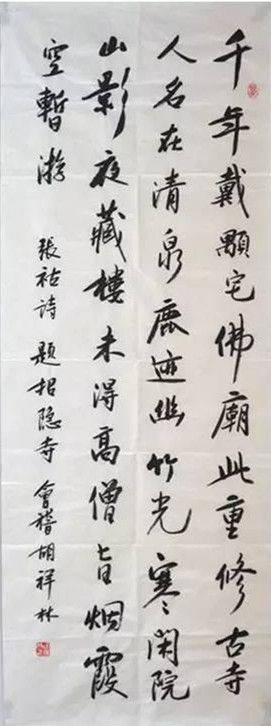 千年戴顒宅佛廟此重修古寺
人名在清泉鹿迹幽竹光寒闲院
山影夜藏樓未得高僧旨烟霞
空暫游 張祜詩 題招隐寺 會稽胡祥林